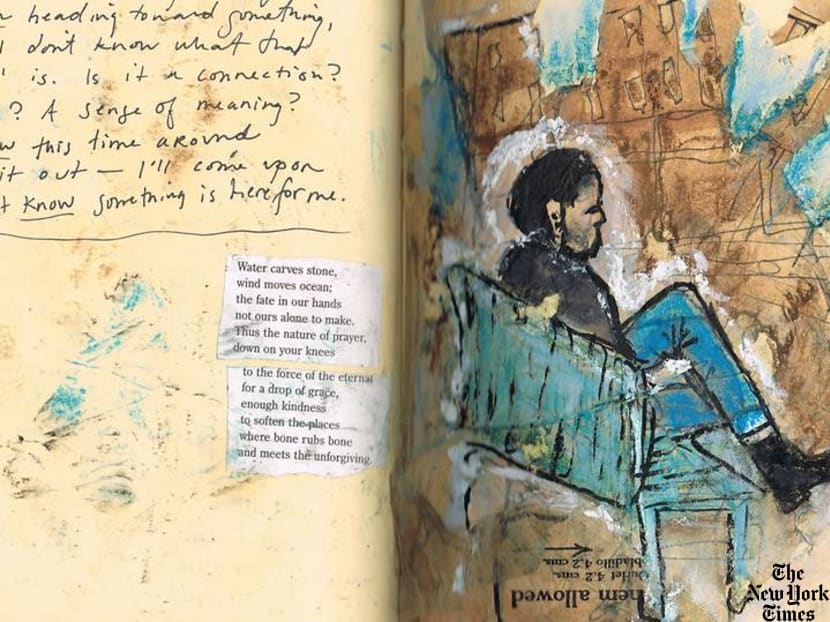 heading toward something,
I don't know what that
is. Is it a connection?
? A sense of meaning?
this time around
it out — I'll come upon
know something is here for me.
Water carves stone,
wind moves ocean;
the fate in our hands
not ours alone to make.
Thus the nature of prayer,
down on your knees
to the force of the eternal
for a drop of grace,
enough kindness
to soften the places
where bone rubs bone
and meets the unforgiving.
hem allowed
4.2 cms.
4.2 cms.
The
New York
Times